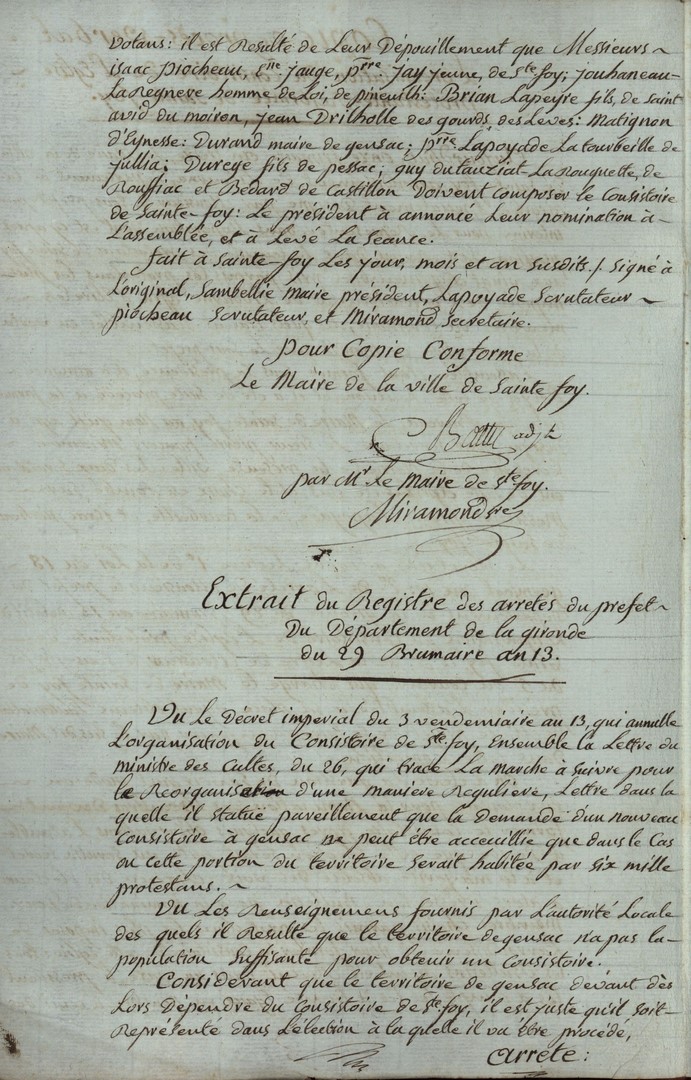 votans: il est Resulté de Leur Dépouillement que Messieurs ~
isaac piocheau, jauge, p.rre jay jeune, de Ste foy; jouhaneau-
La Regneve homme de Loi, de pineuilh: Brian Lapeyre fils, de saint
avid du moiron, jean Drilholle des gourds, des Léves: Matignon
d'Eynesse: Durand maire de gensac; p.rre Lapoyade La tourbeille de
jullia; Durege fils de pessac; guy dutauziat La Rouquette, de
Rouffiac et Bedard de Castillon Doivent composer le Consistoire
de Sainte-foy: Le président à annoncé Leur nomination à-
L'assemblée, et à Levé La Seance.
fait à Sainte-foy Les jour, mois et an susdits. /. Signé à
L'original, Sambellie maire président, Lapoyade Scrutateur ~
piocheau Scrutateur, et Miramond Secretaire.
pour Copie Conforme
Le Maire de la ville de Sainte foy.
adjt
par Mr Le maire de Ste foy.
Miramond sre
Extrait du Registre des arretés du prefet ~
Du Département de la gironde
du 29 Brumaire an 13.
Vu Le Décret imperial du 3 vendemiaire an 13, qui annulle
L'organisation du Consistoire de Ste foy, Ensemble la Lettre du
ministre des Cultes, du 26, qui trace La marche à suivre pour
la Reorganisation d'une maniere Reguliere, Lettre dans la
quelle il statuë pareillement que la Demande d'un nouveau
Consistoire à gensac ne peut étre accceuillie que dans le Cas
ou cette portion du territoire serait habitée par six mille
protestans. ~
Vu Les Renseignemens fournis par L'autorité Locale
des quels il Resulte que le territoire de gensac n'a pas la-
population Suffisante pour obtenir un Consistoire.
Considerant que le territoire de gensac devant dès
Lors Dépendre du Consistoire de Ste foy, il est juste qu'il soit-
Représenté dans L'élection à la quelle il va être procédé,
Arrête: